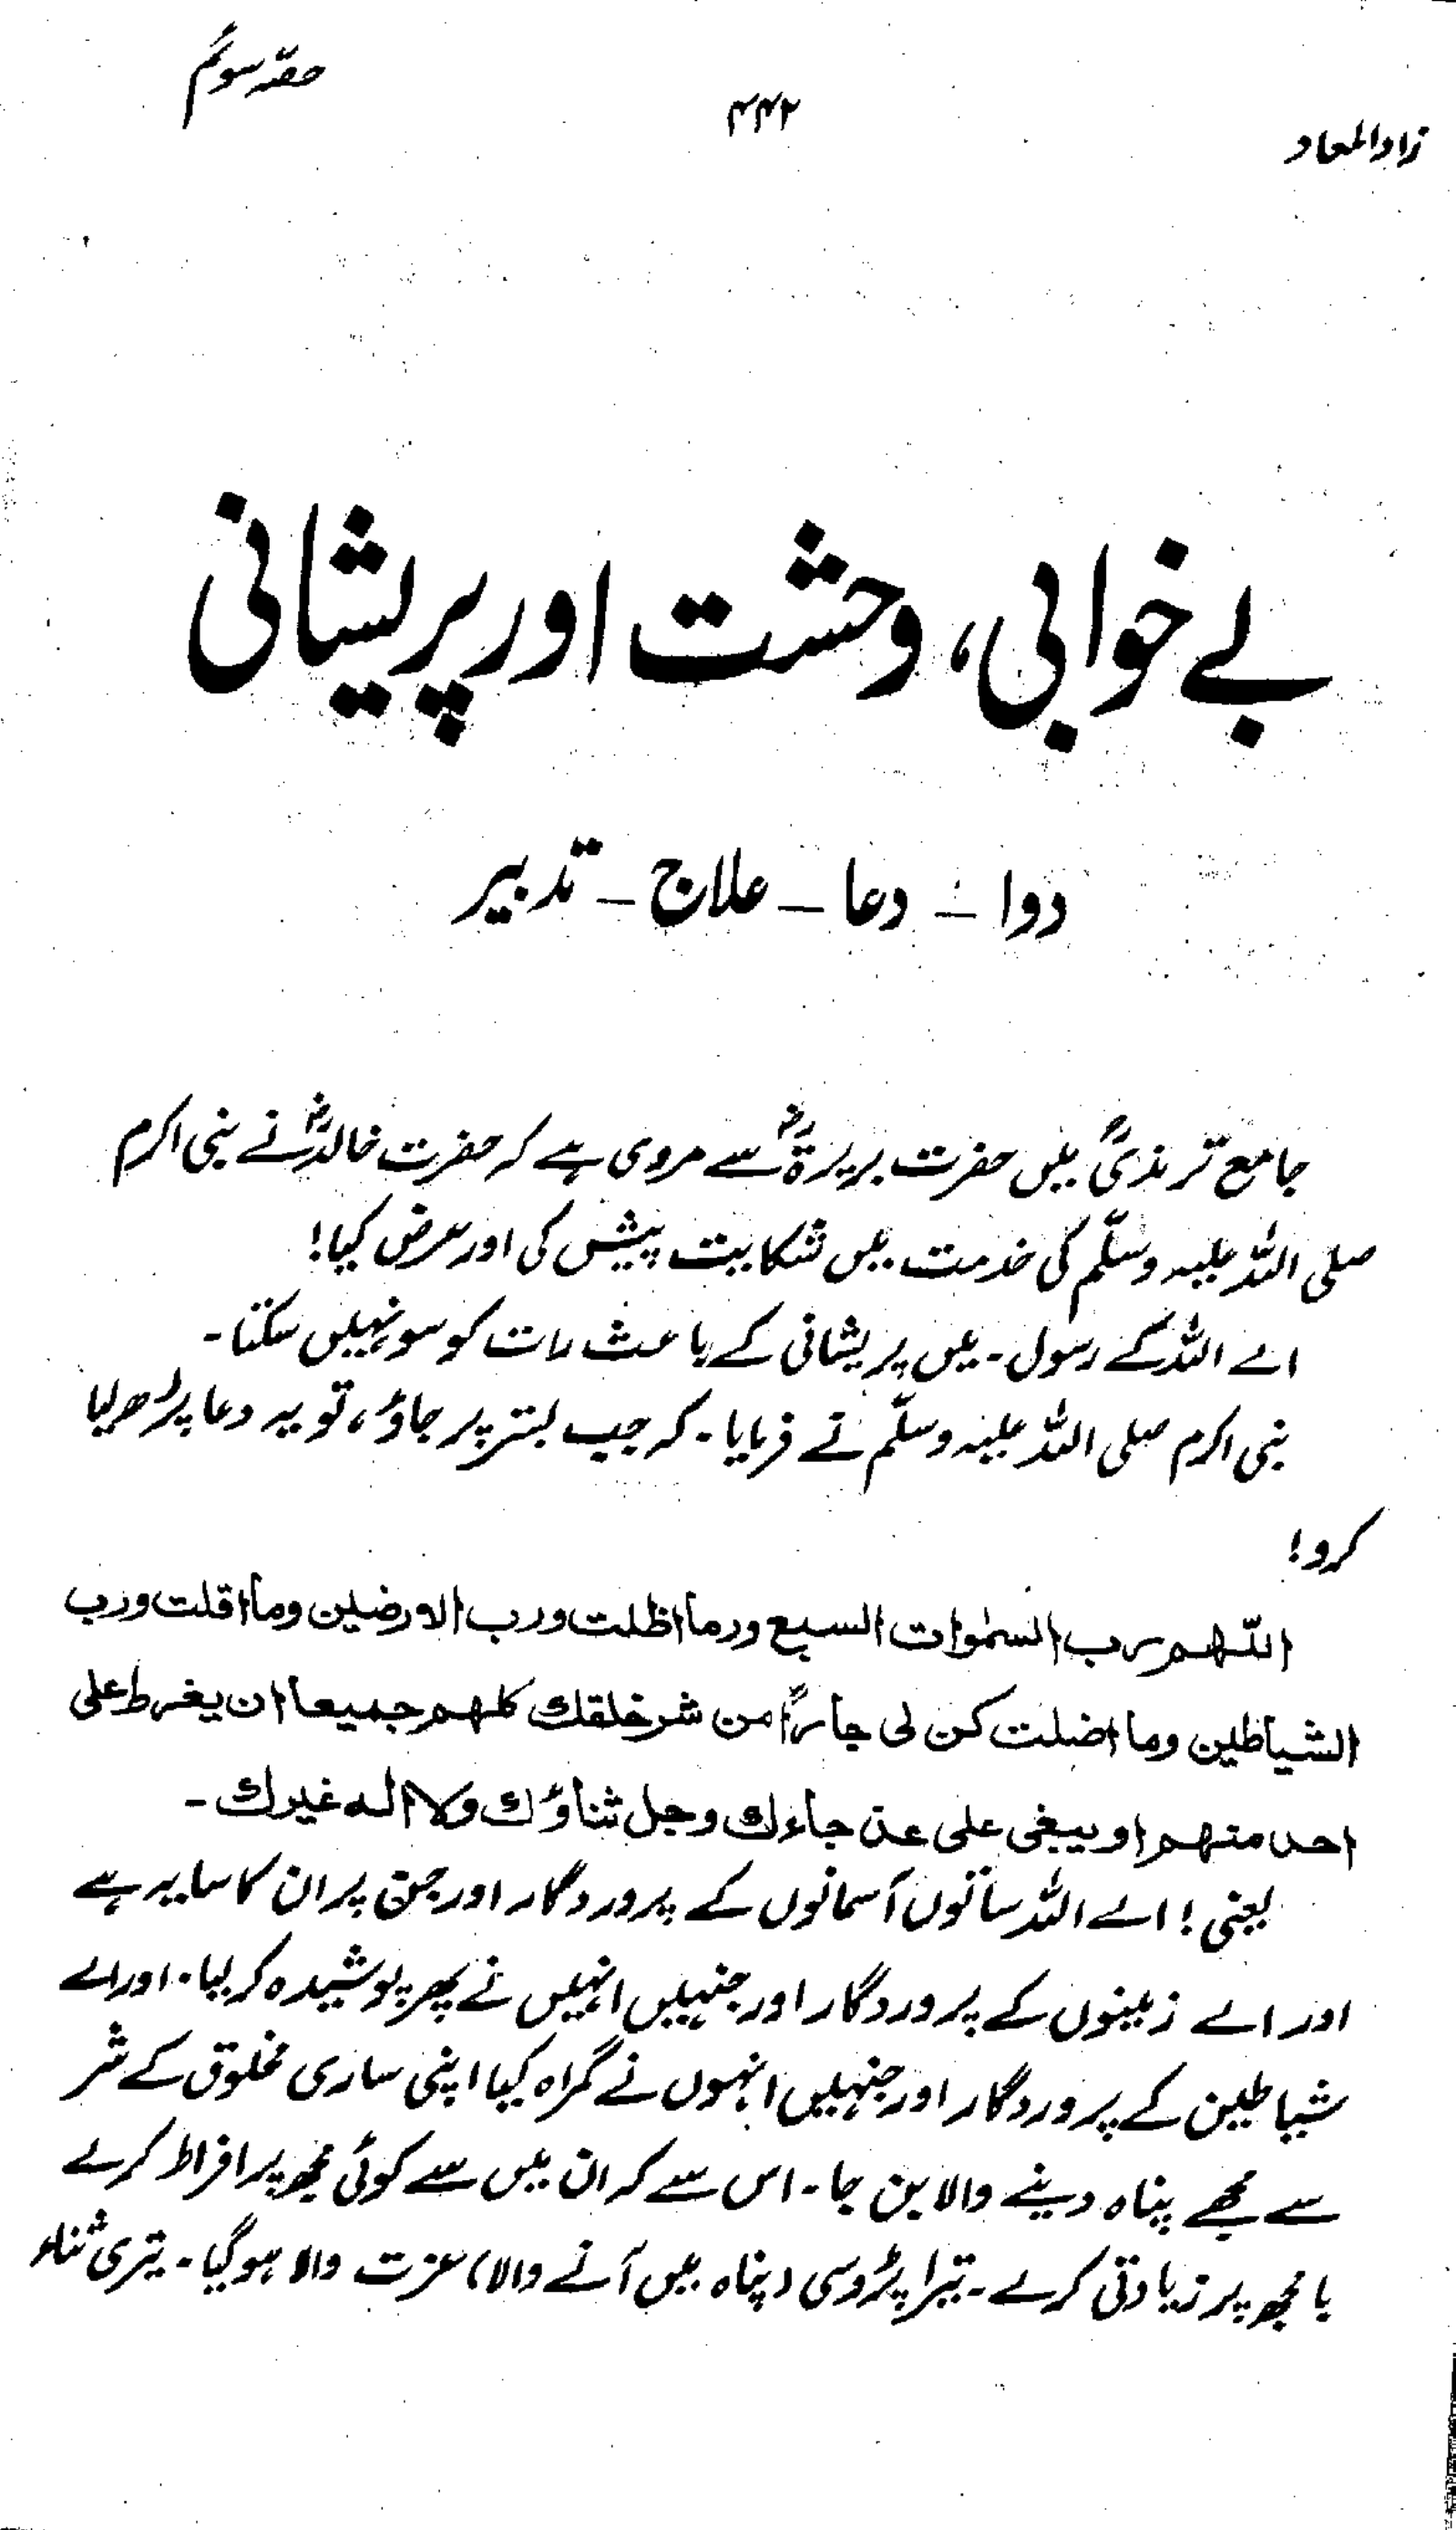 زادالمعاد
۴۴۲
حصّہ سوئم
بے خوابی، وحشت اور پریشانی
دوا — دعا — علاج — تدبیر
جامع ترمذیؒ میں حضرت بریرۃؓ سے مروی ہے کہ حضرت خالدؓ نے نبی اکرم
صلی اللہ علیہ وسلّم کی خدمت میں شکایت پیش کی اور عرض کیا!
اے اللہ کے رسول۔ میں پریشانی کے باعث رات کو سو نہیں سکتا۔
نبی اکرم صلی اللہ علیہ وسلّم نے فرمایا۔ کہ جب بستر پر جاؤ، تو یہ دعا پڑھ لیا
کرو!
اللّٰھم رب السمٰوات السبع ورما اظلت ورب الارضین وما اقلت ورب
الشیاطین وما اضلت کن لی جاراً من شر خلقك کلھم جمیعا ان یفرط علی
احد منھم او یبغی علی عن جاءك وجل ثناؤك ولا الہ غیرك۔
یعنی! اے اللہ ساتوں آسمانوں کے پروردگار اور جن پر ان کا سایہ ہے
اور اے زمینوں کے پروردگار اور جنہیں انہیں نے پھر پوشیدہ کر لیا۔ اور اے
شیاطین کے پروردگار اور جنہیں انہوں نے گمراہ کیا اپنی ساری مخلوق کے شر
سے مجھے پناہ دینے والا بن جا۔ اس سے کہ ان میں سے کوئی مجھ پر افراط کرے
یا مجھ پر زیادتی کرے۔ تیرا پڑوسی (پناہ میں آنے والا) عزت والا ہو گیا۔ تیری ثناء